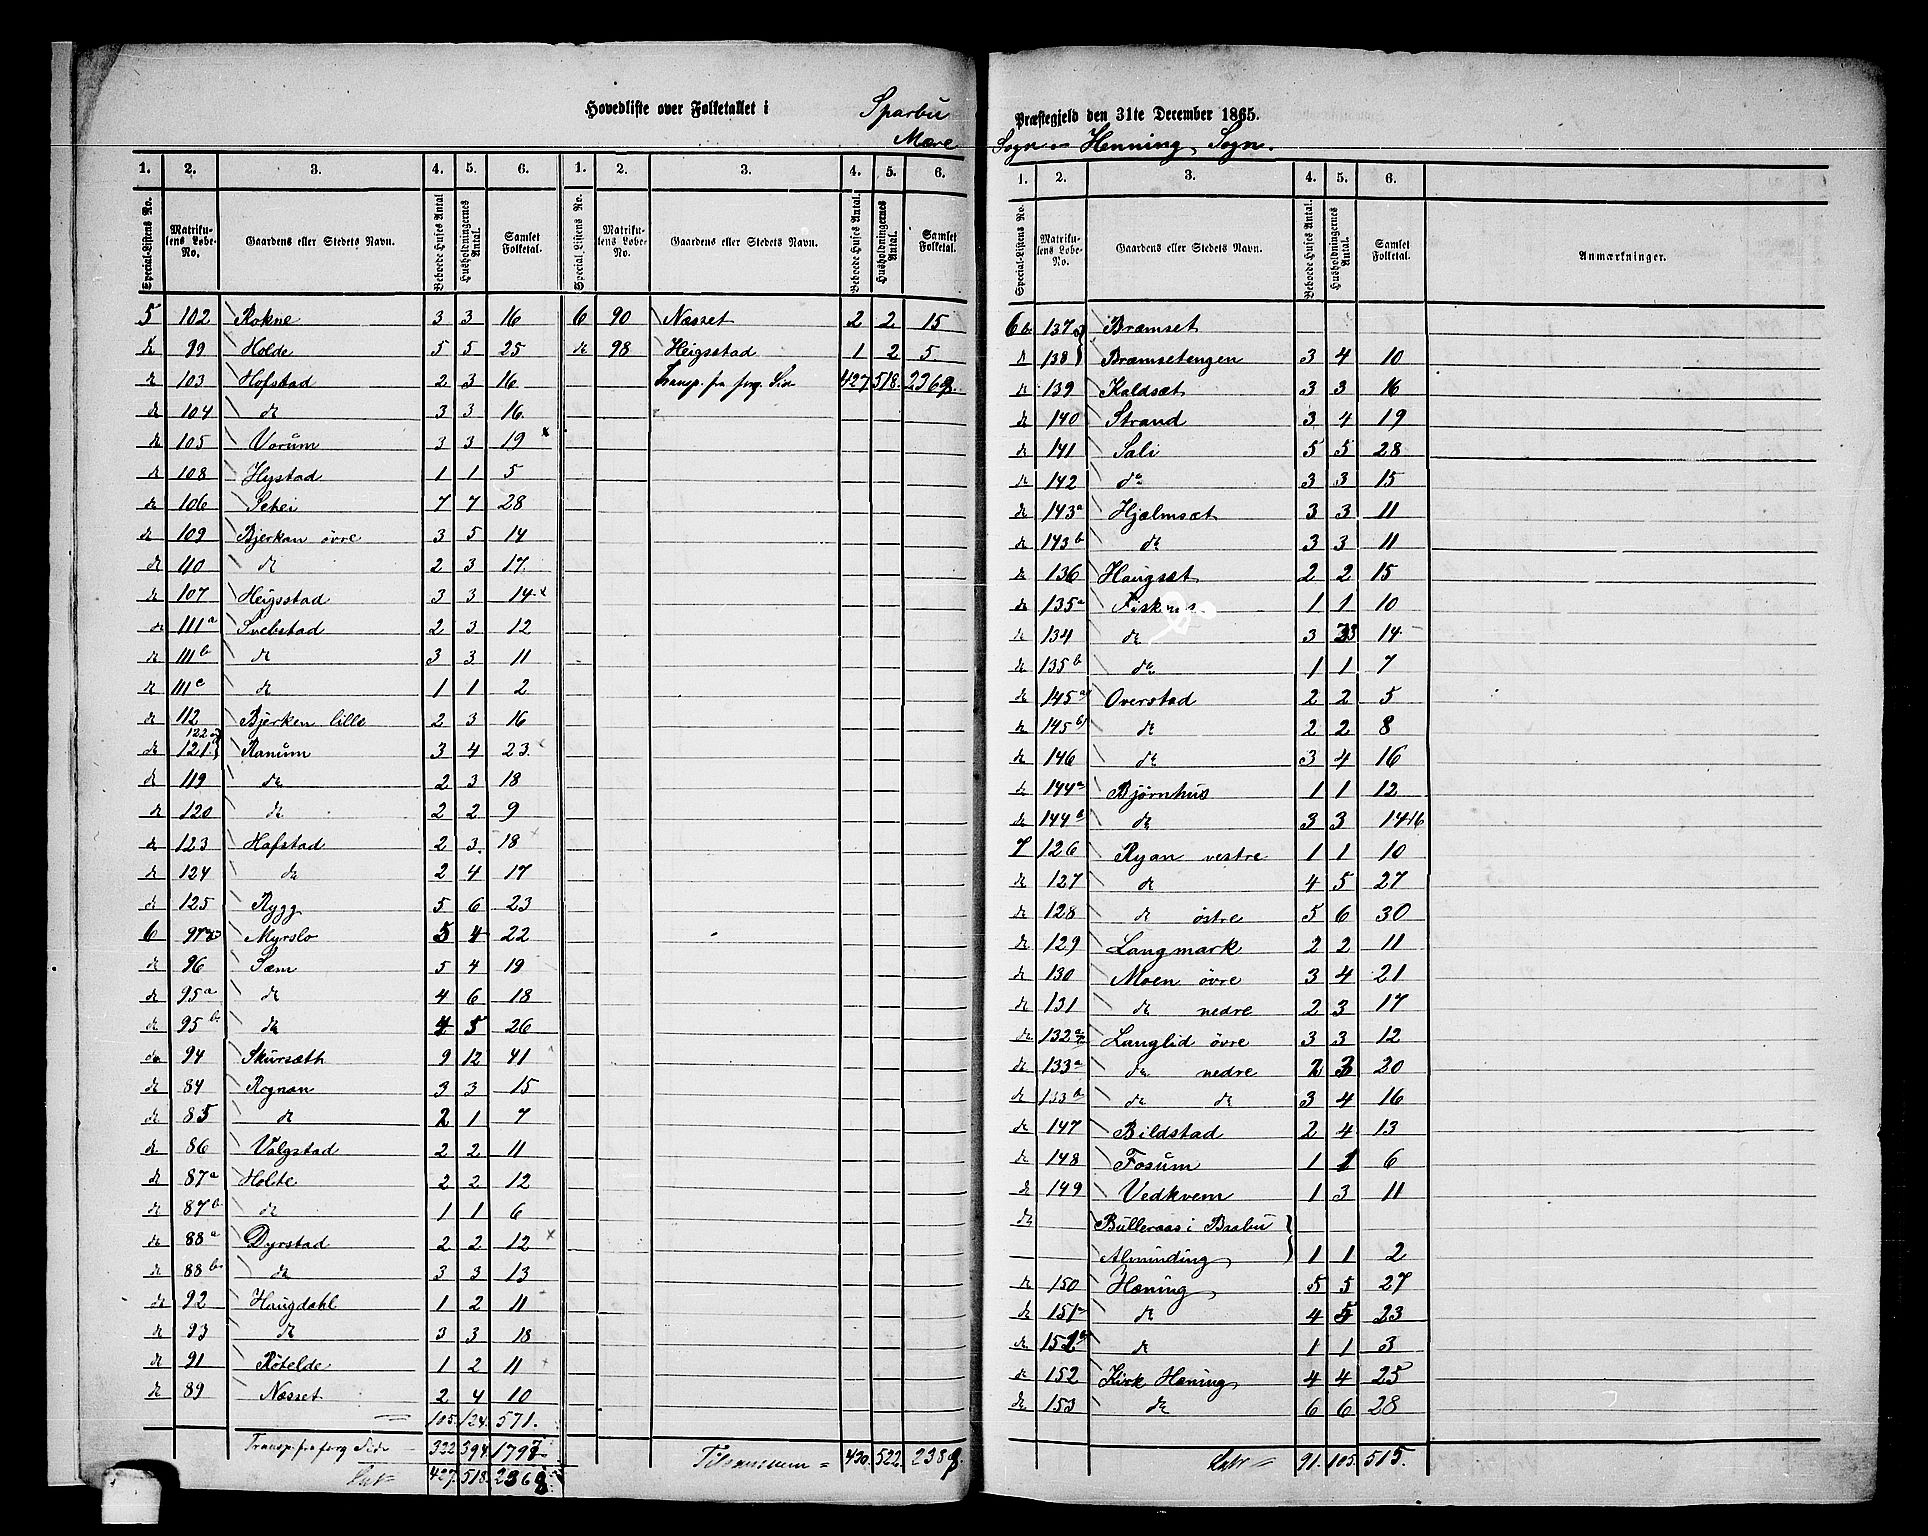 Hovedliste over Folketallet i Sparbu Præstegjeld den 31te December 1865.
Mære Sogn Henning Sogn.
1. 2. 3. 4. 5. 6. 1. 2. 3. 4. 5. 6.
Special-Listens No. Matrikulens Løbe-No. Gaardens eller Stedets Navn. Beboede Huses Antal Husholdningernes Antal. Samlet Folketal. Special Listens No. Matrikulens Løbe-No. Gaardens eller Stedets Navn. Beboede Huses Antal. Husholdningernes Antal. Samlet Folketal.
5 102 Rokne 3 3 16 6 90 Næsset 2 2 15
do 99 Holde 5 5 25 do 98 Heigsstad 1 2 5
do 103 Hofstad 2 3 16 Transp. fra forg. Side 427 518 2368
do 104 do 3 3 16
do 105 Vorum 3 3 19 x
do 108 Hystad 1 1 5
do 106 Schei 7 7 28
do 109 Bjerkan øvre 3 5 14
do 110 do 2 3 17
do 107 Heigsstad 3 3 14 x
do 111a Svebstad 2 3 12
do 111b do 3 3 11
do 111c do 1 1 2
do 112 Bjerken lille 2 3 16
122 og
do 121 Ranum 3 4 23
do 119 do 2 3 18
do 120 do 2 2 9
do 123 Hafstad 2 3 18
do 124 do 2 4 17
do 125 Rygg 5 6 23
6 97 Myrslo 5 4 22
do 96 Sæm 5 4 19
do 95a do 4 6 18
do 95b do 4 5 26
do 94 Skursæth 9 12 41
do 84 Rognan 3 3 15
do 85 do 2 1 7
do 86 Valgstad 2 2 11
do 87a Holte 2 2 12
do 87b do 1 1 6
do 88a Dyrstad 2 2 12 x
do 88b do 3 3 13
do 92 Haugdahl 1 2 11
do 93 do 3 3 18
do 91 Røtelde 1 2 11
do 89 Næsset 2 4 10
105. 124. 571.
Transp. fra forg Side 322 394 1797
Lat 427. 518. 2368
Tilsammen = 430. 522. 2388.
1. 2. 3. 4. 5. 6.
Special-Listens No. Matrikulens Løbe-No. Gaardens eller Stedets Navn. Beboede Huses Antal. Husholdningernes Antal. Samlet Folketal. Anmærkninger.
6b 137 Bræmset
do 138 Bræmsetengen 3 4 10
do 139 Kaldsæt 3 3 16
do 140 Strand 3 4 19
do 141 Sali 5 5 28
do 142 do 3 3 15
do 143a Hjælmsæt 3 3 11
do 143b do 3 3 11
do 136 Haugsæt 2 2 15
do 135a Fisknes 1 1 10
do 134 do 3 3 14
do 135b do 1 1 7
do 145a Overstad 2 2 5
do 145b do 2 2 8
do 146 do 3 4 16
do 144a Bjørnhus 1 1 12
do 144b do 3 3 14 16
7 126 Ryan vestre 1 1 10
do 127 do 4 5 27
do 128 do østre 5 6 30
do 129 Langmark 2 2 11
do 130 Moen øvre 3 4 21
do 131 do nedre 2 3 17
do 132a Langlid øvre 3 3 12
do 133a do nedre 2 3 20
do 133b do do 3 4 16
do 147 Bildstad 2 4 13
do 148 Fosum 1 1 6
do 149 Vedkvem 1 3 11
do Bulleraas i Brabu
Alminding 1 1 2
do 150 Hæning 5 5 27
do 151 do 4 5 23
do 151 do 1 1 3
do 152 Kirk Hæning 4 4 25
do 153 do 6 6 28
Lat 91. 105. 515.